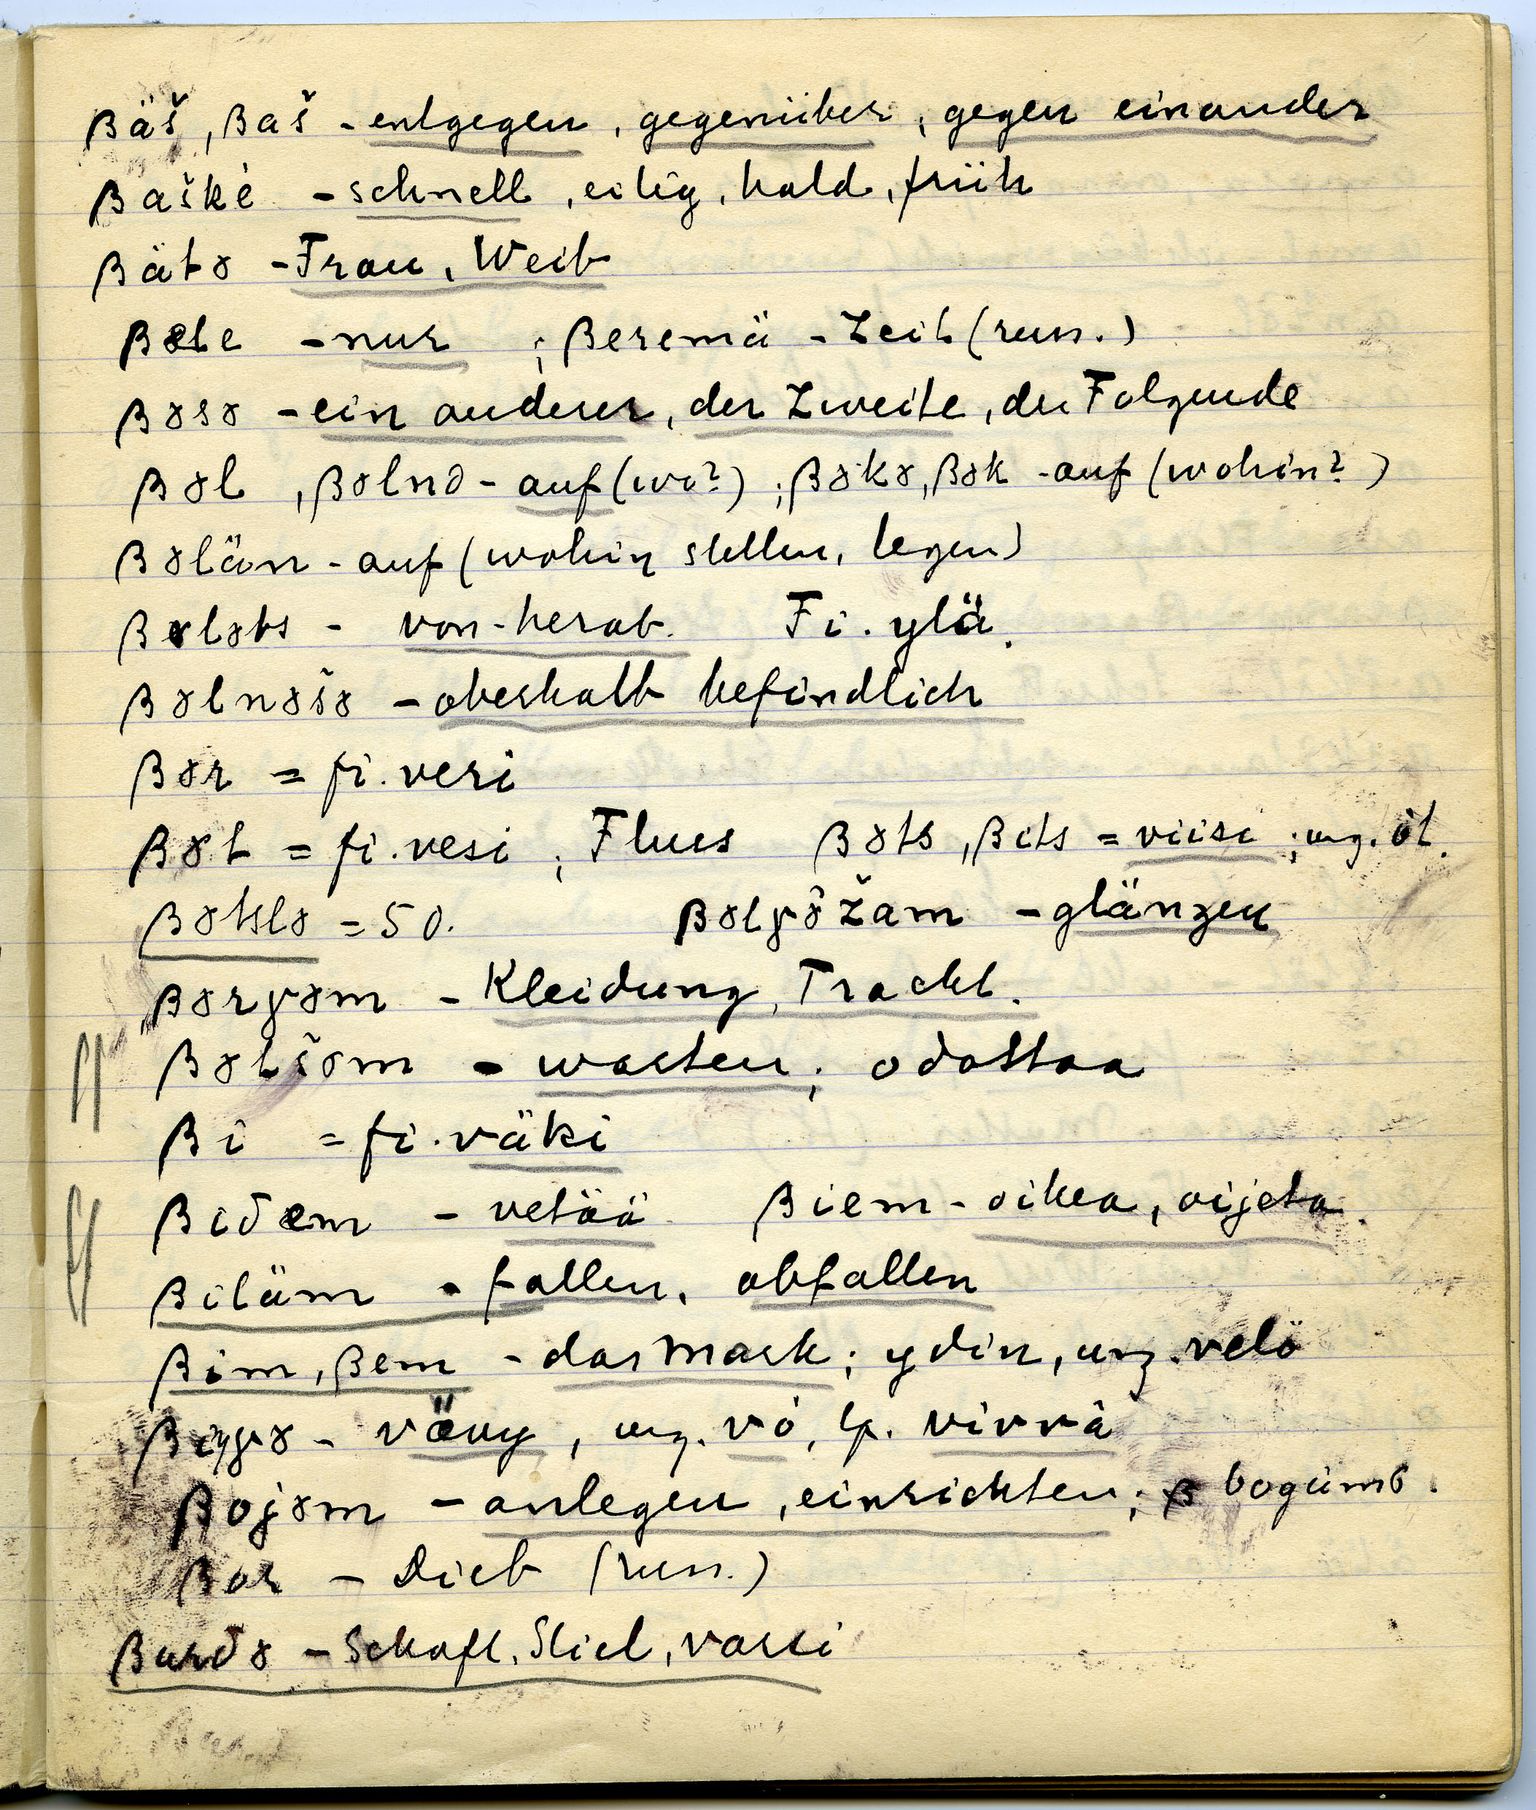 βäš, βaš - entgegen, gegenüber, gegen einander
βaškė - schnell, eilig, bald, früh
βätə - Frau, Weib
βele - nur ; βeremä - Zeit (russ.)
βəsə - ein anderer, der Zweite, der Folgende
βəl, βəlnə - auf (wo?) ; βəkə, βək - auf (wohin?)
βəlän - auf (wohin stellen, legen)
βələts - von-herab. Fi. ylä.
βəlnəšə - oberhalb befindlich
βər = fi. veri
βət = fi. vesi ; Fluss βəts, βits = viisi ; ung. öt.
βətslə = 50. βəlɣə̂žam - glänzen
βərɣəm - Kleidung, Tracht.
βətšəm - warten ; odottaa
βi = fi. väki
βiδem - vetää βiem - oikea, oijeta.
βiläm - fallen, abfallen
βim, βem - das Mark ; ydin, ung. velö
βiŋɣə - vävy, ung. vö, lp. vivvâ
βojəm - anlegen, einrichten ;
βor - Dieb (russ.)
βurδə - Schaft, Stiel, varsi